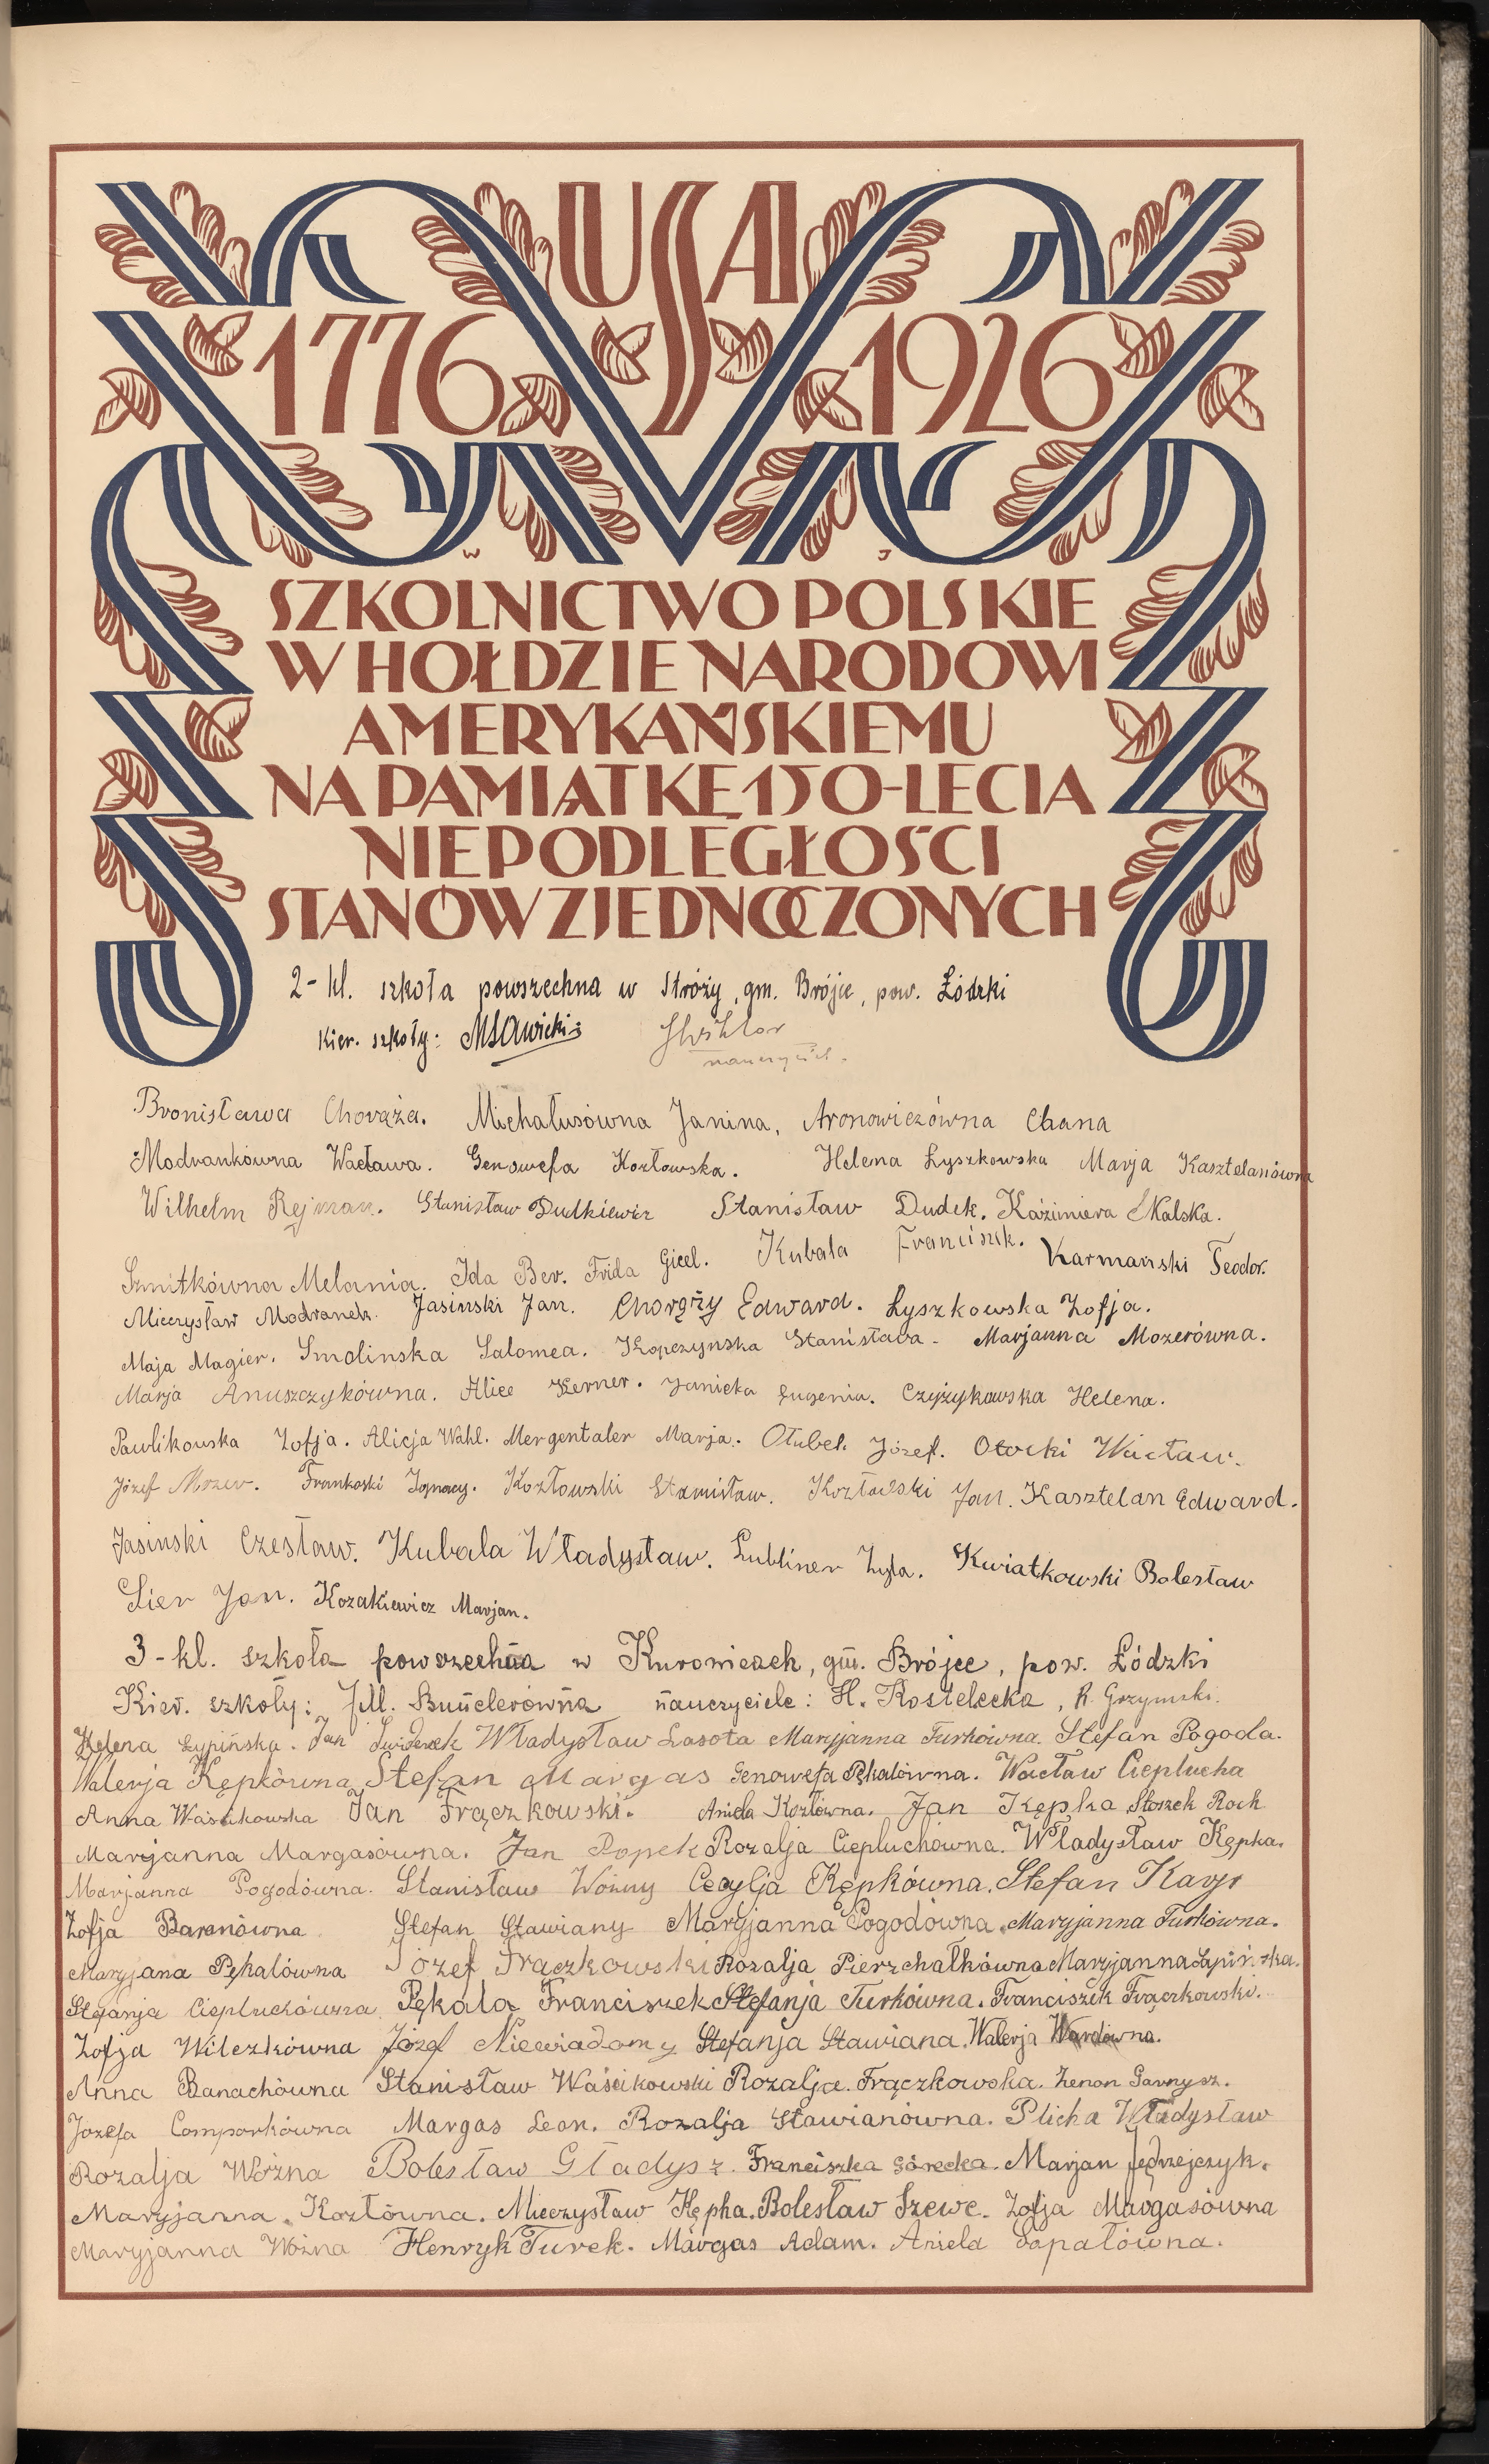 USA
1776 1926
W J
SZKOLNICTWO POLSKIE
W HOŁDZIE NARODOWI
AMERYKAŃSKIEMU
NA PAMIĄTKĘ 150-LECIA
NIEPODLEGŁOŚCI
STANÓW ZJEDNOCZONYCH
2-kl. szkoła powszechna w Stróży, gm. Brójce, pow. Łódzki
Kier. szkoły: MSawicki
nauczyciel.
Bronisława Chorąża. Michałusówna Janina, Aronowiczówna Chana
Modrankówna Wacława. Genowefa Kozłowska. Helena Łyszkowska Marja Kasztelanówna
Wilhelm Rejman. Stanisław Dudkiewicz Stanisław Dudek. Kaźimiera Skalska.
Szmitkówna Melania. Ida Ber. Frida Giel. Kubala Franciszek. Karmański Teodor.
Mieczysław Modranek. Jasiński Jan. Chorąży Edward. Łyszkowska Zofja.
Maja Magier. Smolinska Salomea. Kopczynska Stanisława. Marjanna Mozerówna.
Marja Anuszczykówna. Alice Kerner. Janicka Eugenia. Czyżykowska Helena.
Pawlikowska Zofja. Alicja Wahl. Mergentaler Marja. Otubek Józef. Otocki Wacław.
Józef Mozer. Frankoski Ignacy. Kozłowski Stanisław. Kozłowski Jan. Kasztelan Edward.
Jasinski Czesław. Kubala Władysław. Lubliner Zyla. Kwiatkowski Bolesław
Sier Jan. Kozakiewicz Marjan.
3-kl. szkoła powszechna w Kurowicach, gm. Brójce, pow. Łódzki
Kier. szkoły: J.M. Bunclerówna nauczyciele: H. Kostelecka, R. Grzymski.
Helena Łypińska. Jan Świderek Władysław Lasota Maryjanna Turkówna. Stefan Pogoda.
Walerja Kępkówna Stefan Margas Genowefa Pękalówna. Wacław Cieplucha
Anna Waśsikowska Jan Frączkowski. Aniela Kozłówna. Jan Kępka Stoszek Roch
Maryjanna Margasówna. Jan Popek Rozalja Ciepluchówna. Władysław Kępka.
Marjanna Pogodówna. Stanisław Woźny Cecylja Kępkówna. Stefan Karp
Zofja Baranówna Stefan Stawiany Maryjanna Pogodówna. Maryjanna Turkówna.
Maryjana Pękalówna Józef Frączkowski Rozalja Pierzchałkówna Maryjanna Łapińska.
Stefanja Ciepluchówna Pękala Franciszek Stefanja Turkówna. Franciszek Frączkowski.
Zofja Wilczkówna Józef Niewiadomy Stefanja Stawiana. Walerja Wardówna.
Anna Banachówna Stanisław Waśikowski Rozalja Frączkowska. Zenon Garnysz.
Józefa Comporkówna Margas Leon. Rozalja Stawianówna. Plicha Władysław
Rozalja Woźna Bolesław Gładysz. Franciszka Górecka. Marjan Jędrzejczyk.
Maryjanna Kozłówna. Mieczysław Kępka. Bolesław Szewc. Zofja Margasówna
Maryjanna Woźna Henryk Turek. Margas Adam. Aniela Łopatówna.